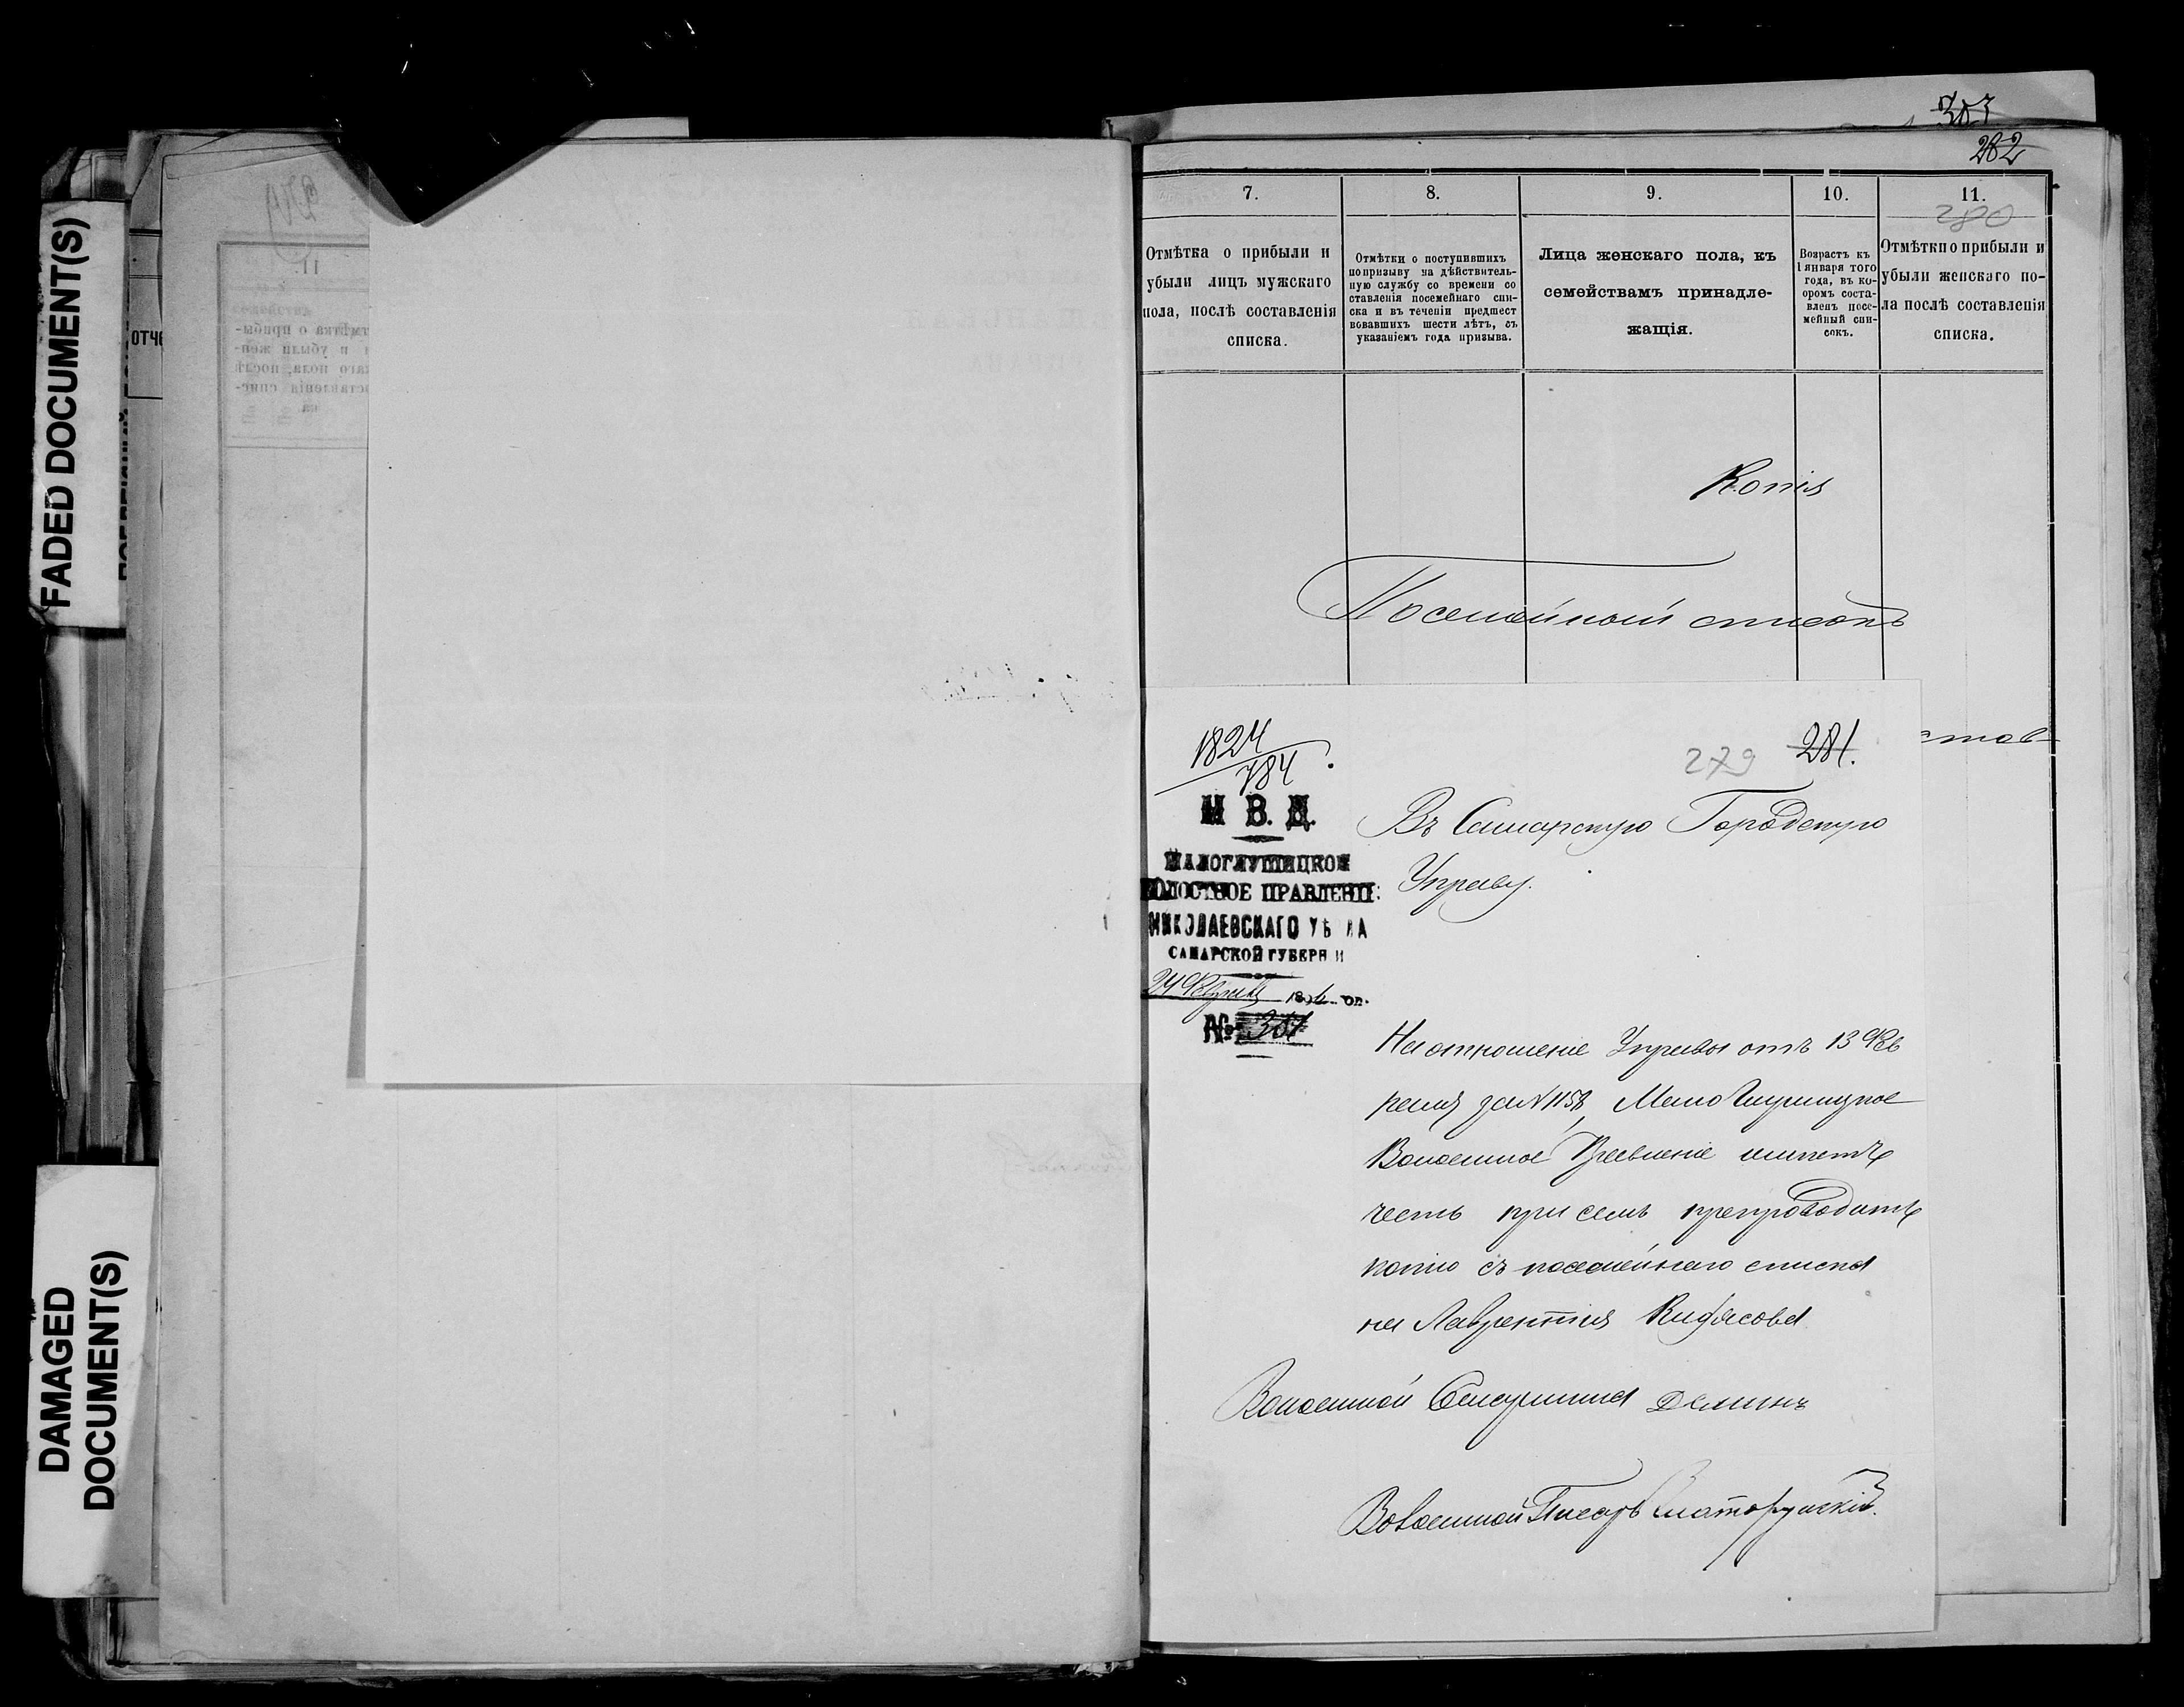 FADED DOCUMENT(S)
DAMAGED
DOCUMENT(S)
282
7.
8.
9.
10.
11.
280
Отмѣтка о прибыли и
убыли лицъ мужскаго
пола, послѣ составленія
списка.
Отмѣтки о поступившихъ
по призыву на дѣйствитель-
ную службу со времени со
ставленія посемейнаго спи-
ска и въ теченіи предшест
вовавшихъ шести лѣтъ, съ
указаніемъ года призыва.
Лица женскаго пола, къ
семействамъ принадле-
жащія.
Возрастъ къ
1 января того
года, въ ко-
оромъ соста-
вленъ посе-
мейный спи-
сокъ.
Отмѣтки о прибыли и
убыли женскаго по-
ла послѣ составленія
списка.
Копія
Посемейный списокъ
1824
784
279 281.
М. В. Д.
МАЛОГЛУШИЦКОЕ
ВОЛОСТНОЕ ПРАВЛЕНІЕ
НИКОЛАЕВСКАГО УѢ ДА
САМАРСКОЙ ГУБЕРН И
24 Февраля 189
№ 351
Въ Самарскую Городскую
Управу.
На отношеніе Управы отъ 13 Фев
раля за № 1158, Мало Глушицкое
Волостное Правленіе имѣетъ
честь при семъ препроводить
копію съ посемейнаго списка
на Лаврентія Кидясова
Волостной Старшина Деминъ
Волостной Писарь